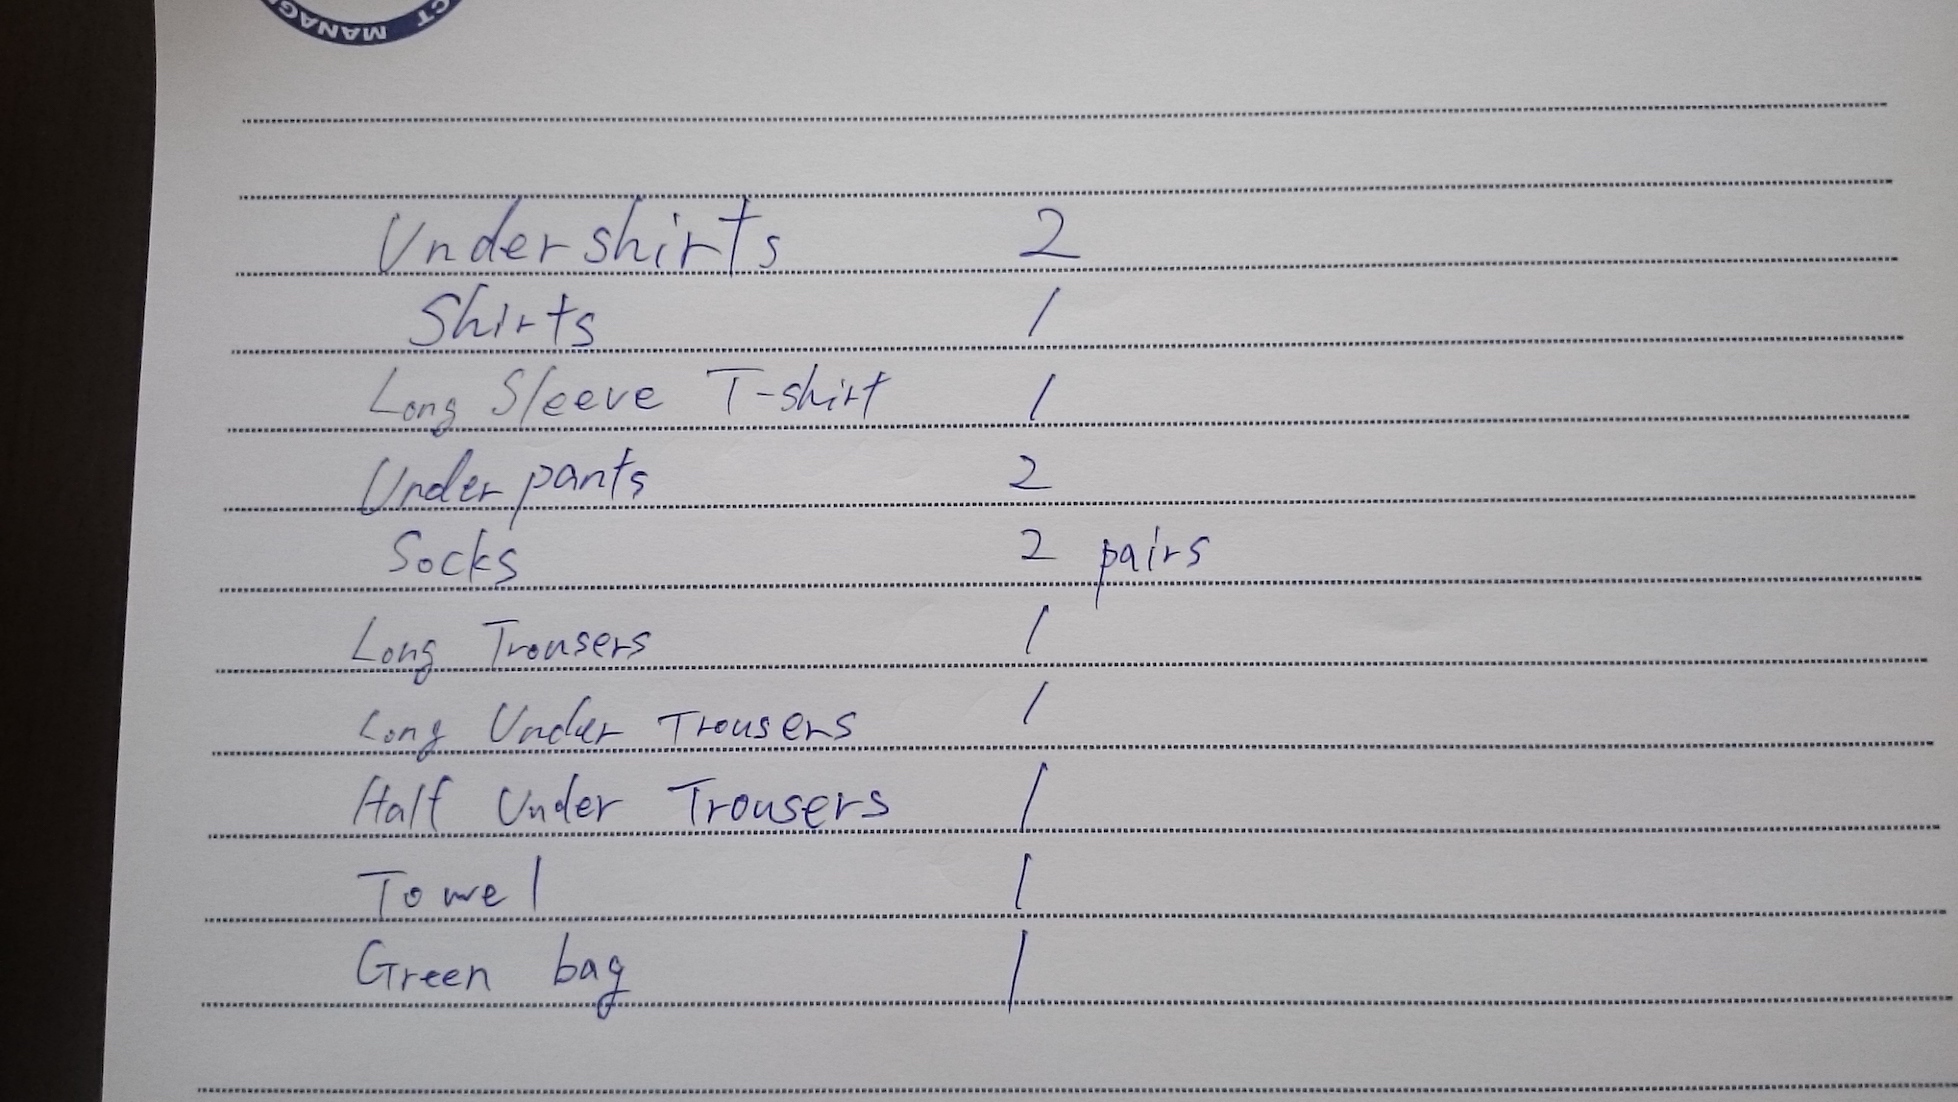 CT MANAG
Undershirts 2
Shirts 1
Long Sleeve T-shirt 1
Underpants 2
Socks 2 pairs
Long Trousers 1
Long Under Trousers 1
Half Under Trousers 1
Towel 1
Green bag 1